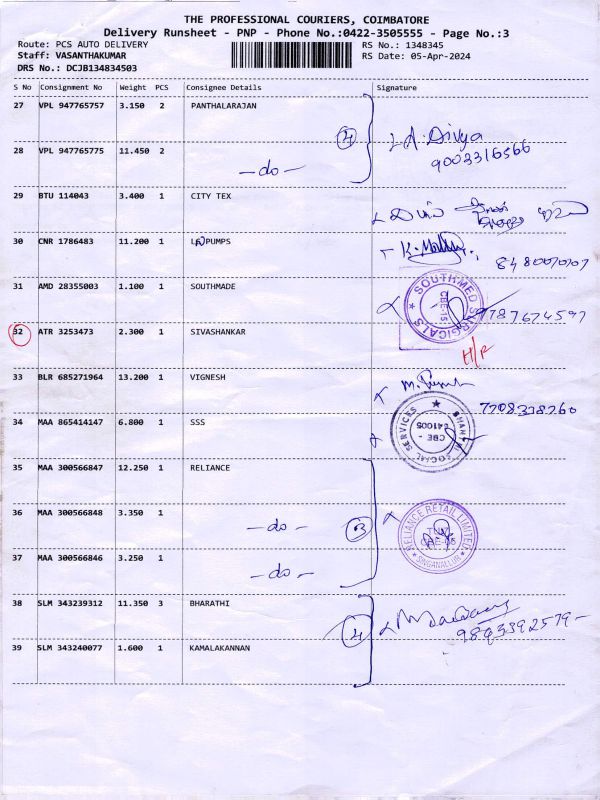 THE PROFESSIONAL COURIERS, COIMBATORE
Delivery Runsheet - PNP - Phone No.:0422-3505555 - Page No.:3
Route: PCS AUTO DELIVERY RS No.: 1348345
Staff: VASANTHAKUMAR RS Date: 05-Apr-2024
DRS No.: DCJB134834503
S No Consignment No Weight PCS Consignee Details Signature
27 VPL 947765757 3.150 2 PANTHALARAJAN
4 Divya
9003316566
28 VPL 947765775 11.450 2
-do-
29 BTU 114043 3.400 1 CITY TEX
30 CNR 1786483 11.200 1 PUMPS
31 AMD 28355003 1.100 1 SOUTHMADE
SOUTHMED SURGICALS
CBE-15
32 ATR 3253473 2.300 1 SIVASHANKAR
H/R
33 BLR 685271964 13.200 1 VIGNESH
7708378260
34 MAA 865414147 6.800 1 SSS
SOCIAL SERVICES
CBE -
641005
35 MAA 300566847 12.250 1 RELIANCE
36 MAA 300566848 3.350 1
-do- 3
RELIANCE RETAIL LIMITED
SINGANALLUR
37 MAA 300566846 3.250 1
-do-
38 SLM 343239312 11.350 3 BHARATHI
4
9843392579
39 SLM 343240077 1.600 1 KAMALAKANNAN